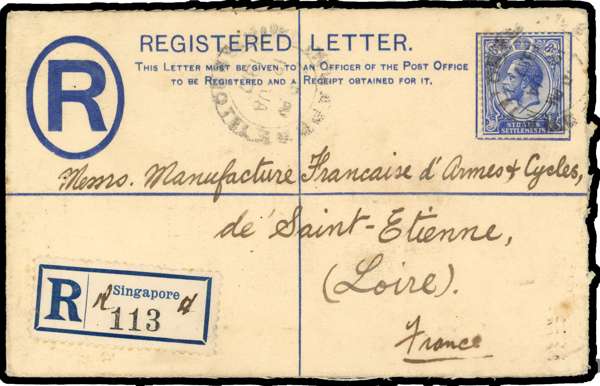 REGISTERED LETTER.
THIS LETTER MUST BE GIVEN TO AN OFFICER OF THE POST OFFICE
TO BE REGISTERED AND A RECEIPT OBTAINED FOR IT.
R
STRAITS
SETTLEMENTS
Messrs. Manufacture Francaise d'Armes & Cycles,
de Saint-Etienne,
(Loire).
France
R
Singapore
113